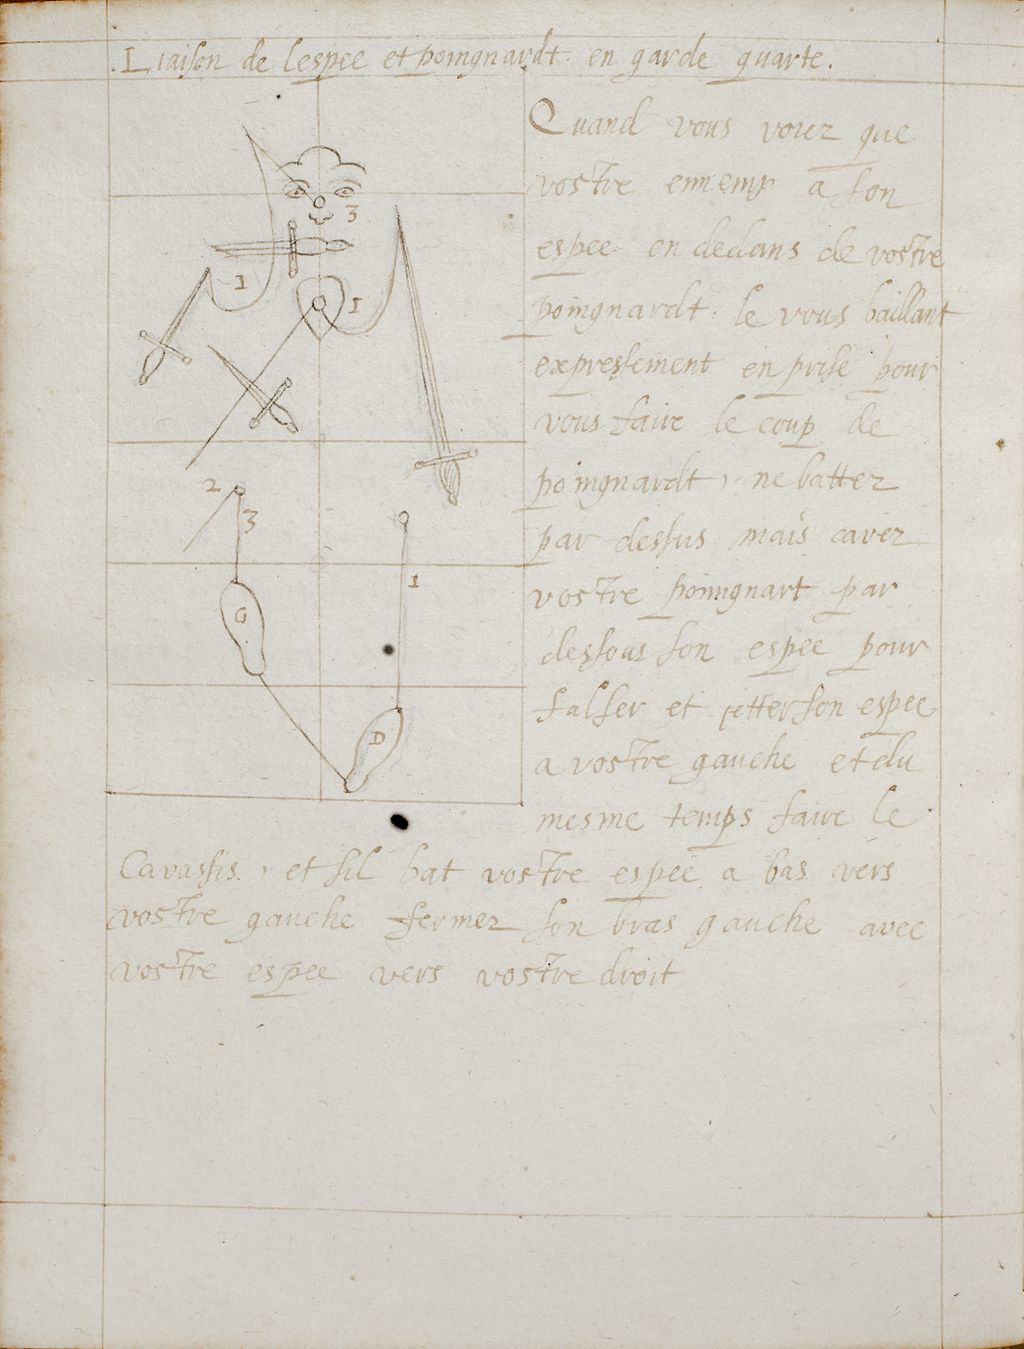 .Liaison de lespee et poingnardt. en garde quarte.
Quand vous voiez que
vostre ennemy a son
espee en dedans de vostre
poingnardt. le vous baillant
expressement en prise pour
vous faire le coup de
poingnardt, ne batter
par dessus mais caver
vostre poinngnart par
dessous son espee pour
falser et jetter son espee
a vostre gauche et du
mesme temps faire le
Cavassis, et sil bat vostre espee a bas vers
vostre gauche fermez son bras gauche avec
vostre espee vers vostre droit
3
1
1
2
3
1
G
D